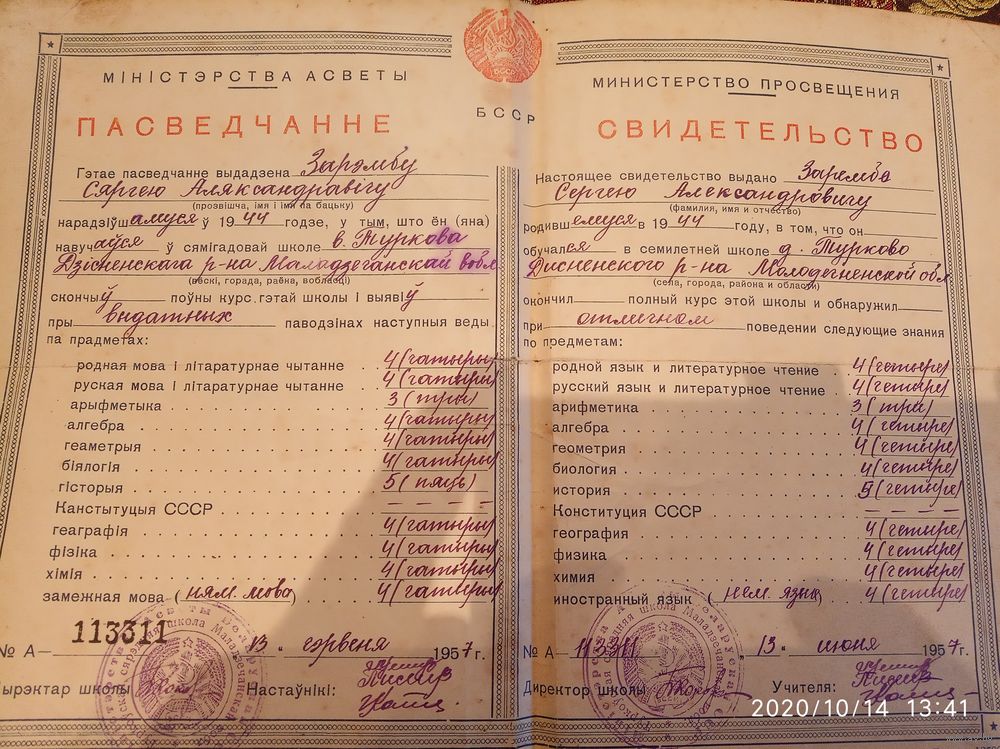 МІНІСТЭРСТВА АСВЕТЫ
ПАСВЕДЧАННЕ
Гэтае пасведчанне выдадзена Зарэмбу
Сяргею Аляксандравічу
(прозвішча, імя і імя па бацьку)
нарадзіўшамуся ў 1944 годзе, у тым, што ён (яна)
навучаўся ў сямігадовай школе в. Туркова
Дзісненскага р-на Маладзечанскай вобл
(вёскі, горада, раёна, вобласці)
скончыў поўны курс гэтай школы і выявіў
пры выдатных паводзінах наступныя веды
па прадметах:
родная мова і літаратурнае чытанне 4 (чатыры)
руская мова і літаратурнае чытанне 4 (чатыры)
арыфметыка 3 (тры)
алгебра 4 (чатыры)
геаметрыя 4 (чатыры)
біялогія 4 (чатыры)
гісторыя 5 (пяць)
Канстытуцыя СССР — — —
геаграфія 4 (чатыры)
фізіка 4 (чатыры)
хімія 4 (чатыры)
замежная мова (ням. мова) 4 (чатыры)
№ А— 113311 13 " чэрвеня 1957 г.
Дырэктар школы Настаўнікі:
БССР
БССР
МИНИСТЕРСТВО ПРОСВЕЩЕНИЯ
СВИДЕТЕЛЬСТВО
Настоящее свидетельство выдано Зарембе
Сергею Александровичу
(фамилия, имя и отчество)
родившемуся в 1944 году, в том, что он
обучался в семилетней школе д. Турково
Дисненского р-на Молодечненской обл
(села, города, района и области)
окончил полный курс этой школы и обнаружил
при отличном поведении следующие знания
по предметам:
родной язык и литературное чтение 4 (четыре)
русский язык и литературное чтение 4 (четыре)
арифметика 3 (три)
алгебра 4 (четыре)
геометрия 4 (четыре)
биология 4 (четыре)
история 5 (четыре)
Конституция СССР — — —
география 4 (четыре)
физика 4 (четыре)
химия 4 (четыре)
иностранный язык (нем. язык) 4 (четыре)
№ А— 113311 13 " июня 1957 г.
Директор школы Учителя:
2020/10/14 13:41